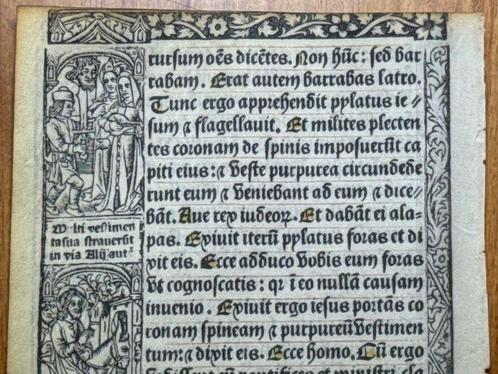 rursum oēs dicētes. Non hūc: sed bar
rabam. Erat autem barrabas latro.
Tunc ergo apprehendit pylatus ie⸗
sum ⁊ flagellauit. Et milites plecten
tes coronam de spinis imposuerūt ca
piti eius: ⁊ veste purpurea circundede
runt eum ⁊ veniebant ad eum ⁊ dice⸗
bāt. Aue rex iudeoꝝ. Et dabāt ei ala⸗
pas. Exiuit iterū pylatus foras et di
xit eis. Ecce adduco vobis eum foras
vt cognoscatis: qꝛ ī eo nullā causam
inuenio. Exiuit ergo iesus portās co
ronam spineam ⁊ purpureū vestimen
tum: ⁊ dixit eis. Ecce homo. Cū ergo
Mlti vestimen
ta sua strauerūt
in via Alij. aut᷒